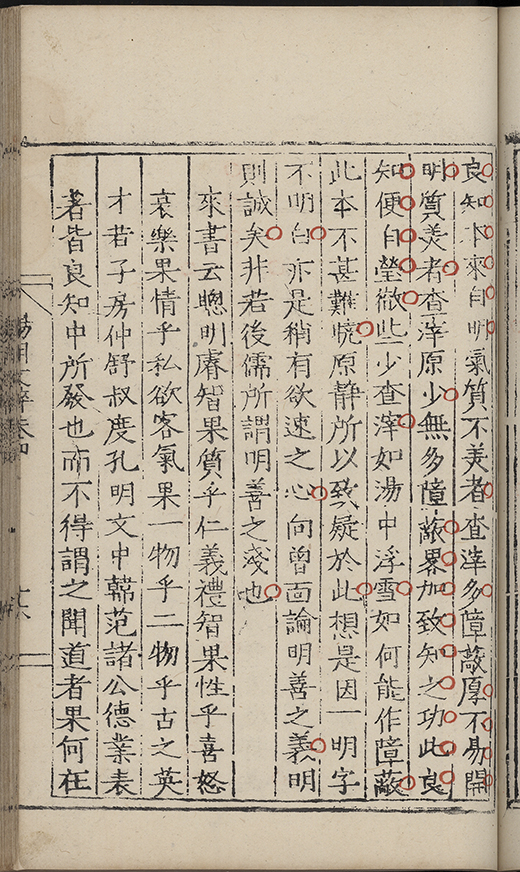 良知本來自明氣質不美者查滓多障蔽厚不易開
明質美者查滓原少無多障蔽畧加致知之功此良
知便自瑩徹些少查滓如湯中浮雪如何能作障蔽
此本不甚難曉原靜所以致疑於此想是因一明字
不明白亦是稍有欲速之心向曾面論明善之義明
則誠矣非若後儒所謂明善之淺也
來書云聰明睿智果質乎仁義禮智果性乎喜怒
哀樂果情乎私欲客氣果一物乎二物乎古之英
才若子房仲舒叔度孔明文中韓范諸公德業表
著皆良知中所發也而不得謂之聞道者果何在
陽明文粹卷四